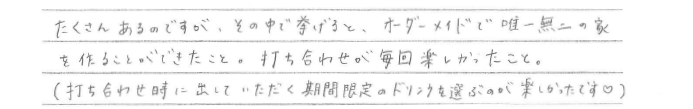 たくさんあるのですが、その中で挙げると、オーダーメイドで唯一無二の家
を作ることができたこと。打ち合わせが毎回楽しかったこと。
(打ち合わせ時に出していただく期間限定のドリンクを選ぶのが楽しかったです♡)